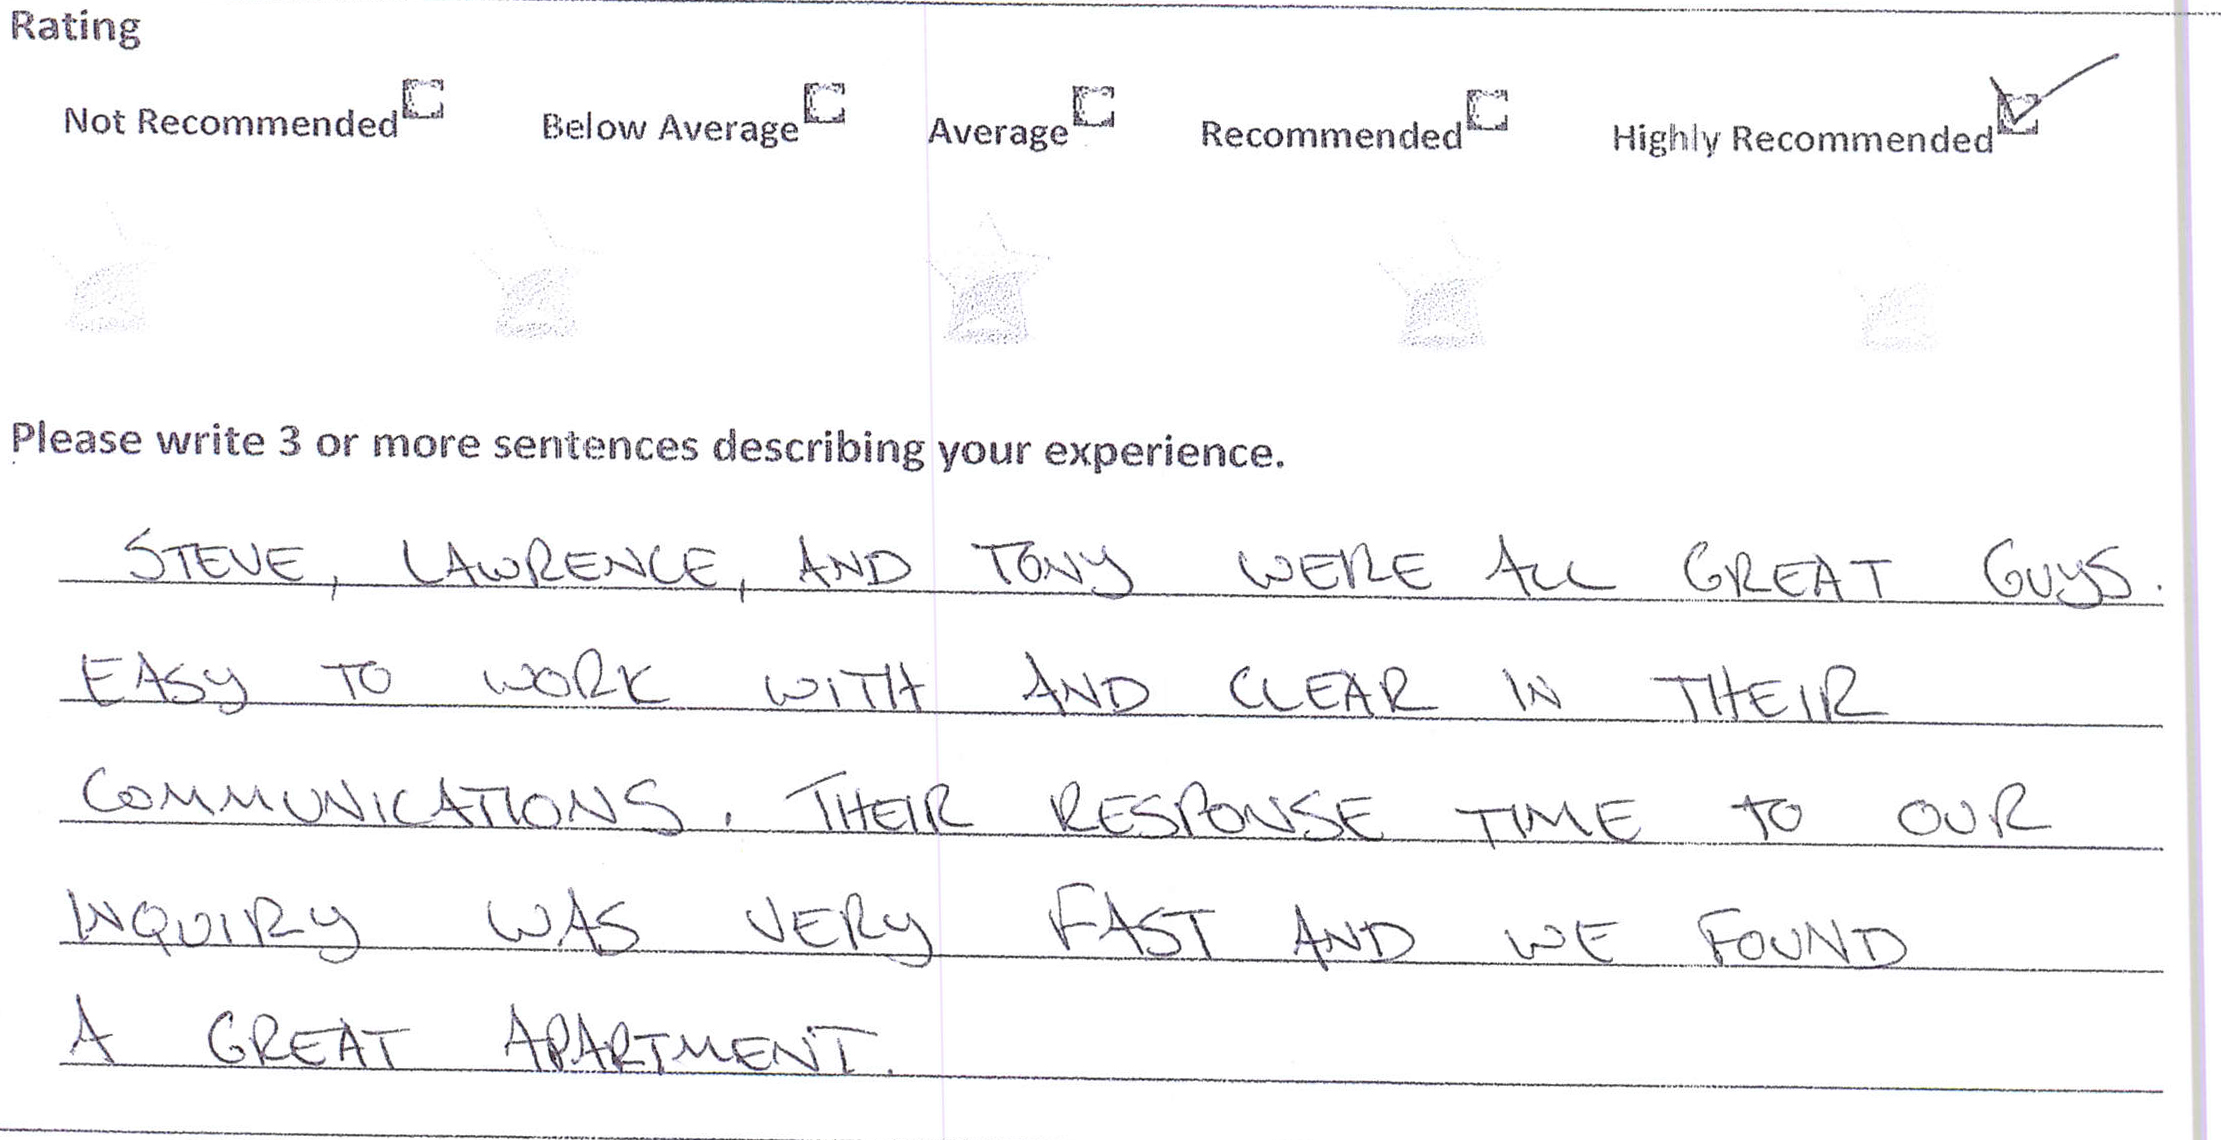 Rating
Not Recommended Below Average Average Recommended Highly Recommended
Please write 3 or more sentences describing your experience.
STEVE, LAWRENCE, AND TONY WERE ALL GREAT GUYS.
EASY TO WORK WITH AND CLEAR IN THEIR
COMMUNICATIONS. THEIR RESPONSE TIME TO OUR
INQUIRY WAS VERY FAST AND WE FOUND
A GREAT APARTMENT.